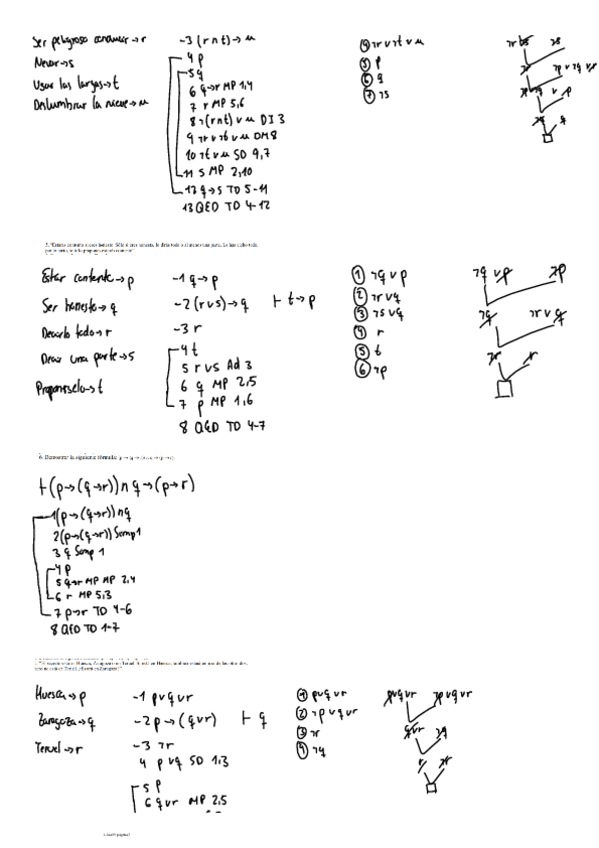 Ser peligroso conducir→r
-3 (r∧t)→u
Nevar→s
Usar las largas→t
Deslumbrar la nieve→u
4 p
5 q
6 q→r MP 1,4
7 r MP 5,6
8 ¬(r∧t) ∨ u DI 3
9 ¬r∨¬t∨u DM 8
10 ¬t∨u SD 9,7
11 s MP 2,10
12 q→s TD 5-11
13 QED TD 4-12
④ ¬r∨¬t∨u
⑤ p
⑥ q
⑦ ¬s
Estar contento→p
Ser honesto→q
Decirlo todo→r
Decir una parte→s
Proponérselo→t
-1 q→p
-2 (r∨s)→q ⊢ t→p
-3 r
4 t
5 r∨s Ad 3
6 q MP 2,5
7 p MP 1,6
8 QED TD 4-7
① ¬q∨p
② ¬r∨q
③ ¬s∨q
④ r
⑤ t
⑥ ¬p
¬q∨p ¬p
¬q ¬r∨q
¬r r
6. Demostrar la siguiente fórmula:
⊢(p→(q→r))∧q→(p→r)
1(p→(q→r))∧q
2(p→(q→r)) Simp 1
3 q Simp 1
4 p
5 q→r MP 2,4
6 r MP 5,3
7 p→r TD 4-6
8 QED TD 1-7
Huesca→p
Zaragoza→q
Teruel→r
-1 p∨q∨r
-2 p→(q∨r) ⊢ q
-3 ¬r
4 p∨q SD 1,3
5 p
6 q∨r MP 2,5
① p∨q∨r
② ¬p∨q∨r
③ ¬r
④ ¬q
p∨q∨r ¬p∨q∨r
q∨r ¬q
r ¬r